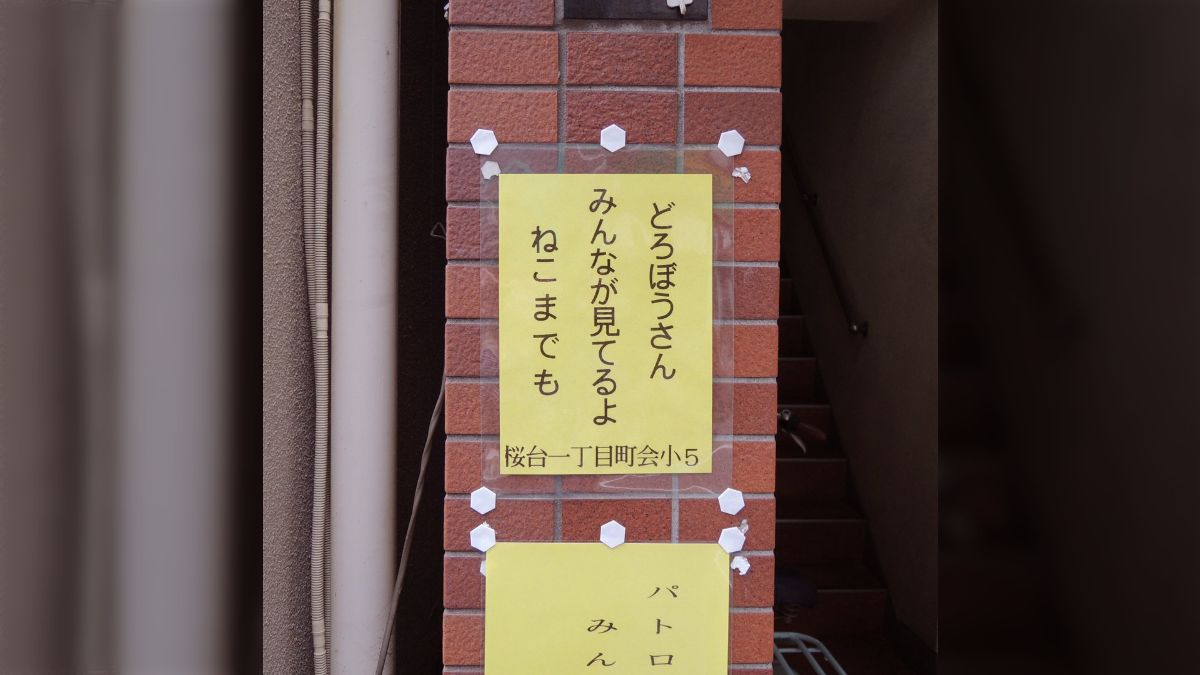 どろぼうさん
みんなが見てるよ
ねこまでも
桜台一丁目町会小5
パトロ
みん